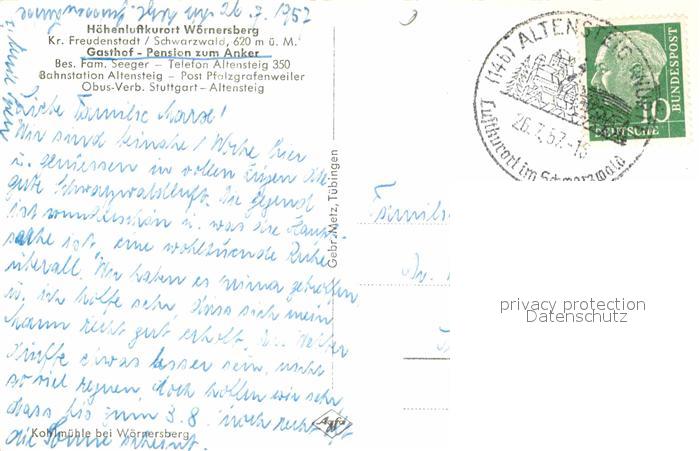 26.7.1957
Höhenluftkurort Wörnersberg
Kr. Freudenstadt / Schwarzwald, 620 m ü. M.
Gasthof - Pension zum Anker
Bes. Fam. Seeger - Telefon Altensteig 350
Bahnstation Altensteig - Post Pfalzgrafenweiler
Obus-Verb. Stuttgart - Altensteig
Liebe Familie
Wir sind beinahe 1 Woche hier
u. geniessen in vollen Zügen die
gute Schwarzwaldluft. Die Gegend
ist wunderschön u. was die Haupt-
sache ist, eine wohltuende Ruhe
überall. Wir haben es prima getroffen
u. ich hoffe sehr, dass sich mein
Mann recht gut erholt. Das Wetter
dürfte etwas besser sein, nicht
so viel regnen, doch wollen wir sehn
dass bis zum 3.8. noch recht oft
die Sonne scheint.
Kohlmühle bei Wörnersberg
Gebr. Metz, Tübingen
Agfa
(14b) ALTENSTEIG
26.7.57.-16
Luftkurort im Schwarzwald
10
DEUTSCHE
BUNDESPOST
Famili
privacy protection
Datenschutz